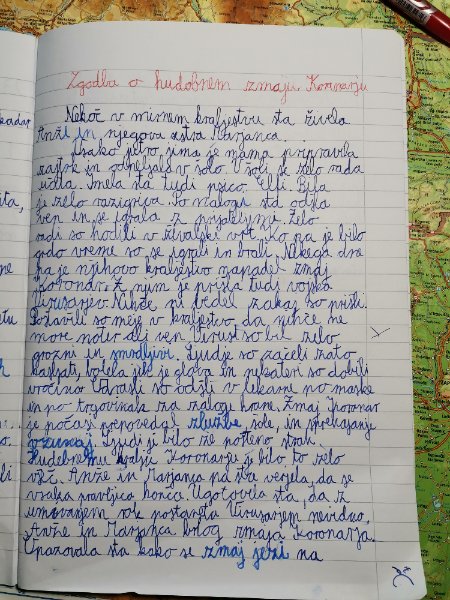 Zgodba o hudobnem zmaju Koronarju
Nekoč v mirnem kraljestvu sta živela
Anže in njegova sestra Marjanca.
Vsako jutro jima je mama pripravila
zajtrk in odpeljala v šolo. V šoli se zelo rada
učila. Imela sta tudi psico, Elfi. Bila
je zelo razigriva. Po nalogi sta odšla
ven in se igrala z prijateljymi. Zelo
radi so hodili v živalski vrt. Ko pa je bilo
grdo vreme so se igrali in brali. Nekega dne
pa je njihovo kraljestvo napadel zmaj
Koronar. Z njim je prišla tudi vojska
Virusarjev. Nihče ni vedel zakaj so prišli.
Postavili so meje v kraljestvo, da nihče ne
more noter ali ven. Virusi so bili zelo
grozni in smrdljivi. Ljudje so začeli zato
kašljati, bolela jih je glava in nekateri so dobili
vročino. Odrasli so odšli v lekarne po maske
in po trgovinah za zalogo hrane. Zmaj Koronar
je počasi prepovedal službe, šole, in sprehajanje
zunaj. Ljudi ji bilo že pošteno strah.
Hudobnemu kralju Koronarju ji bilo to zelo
všeč. Anže in Marjanca pa sta verjela, da se
vsaka pravljica konča. Ugotovila sta, da z
umivanjem rok postaneta Virusarjem nevidna.
Anže in Marjanca blizg zmaja Koronarja.
Opazovala sta kako se zmaj jezi na